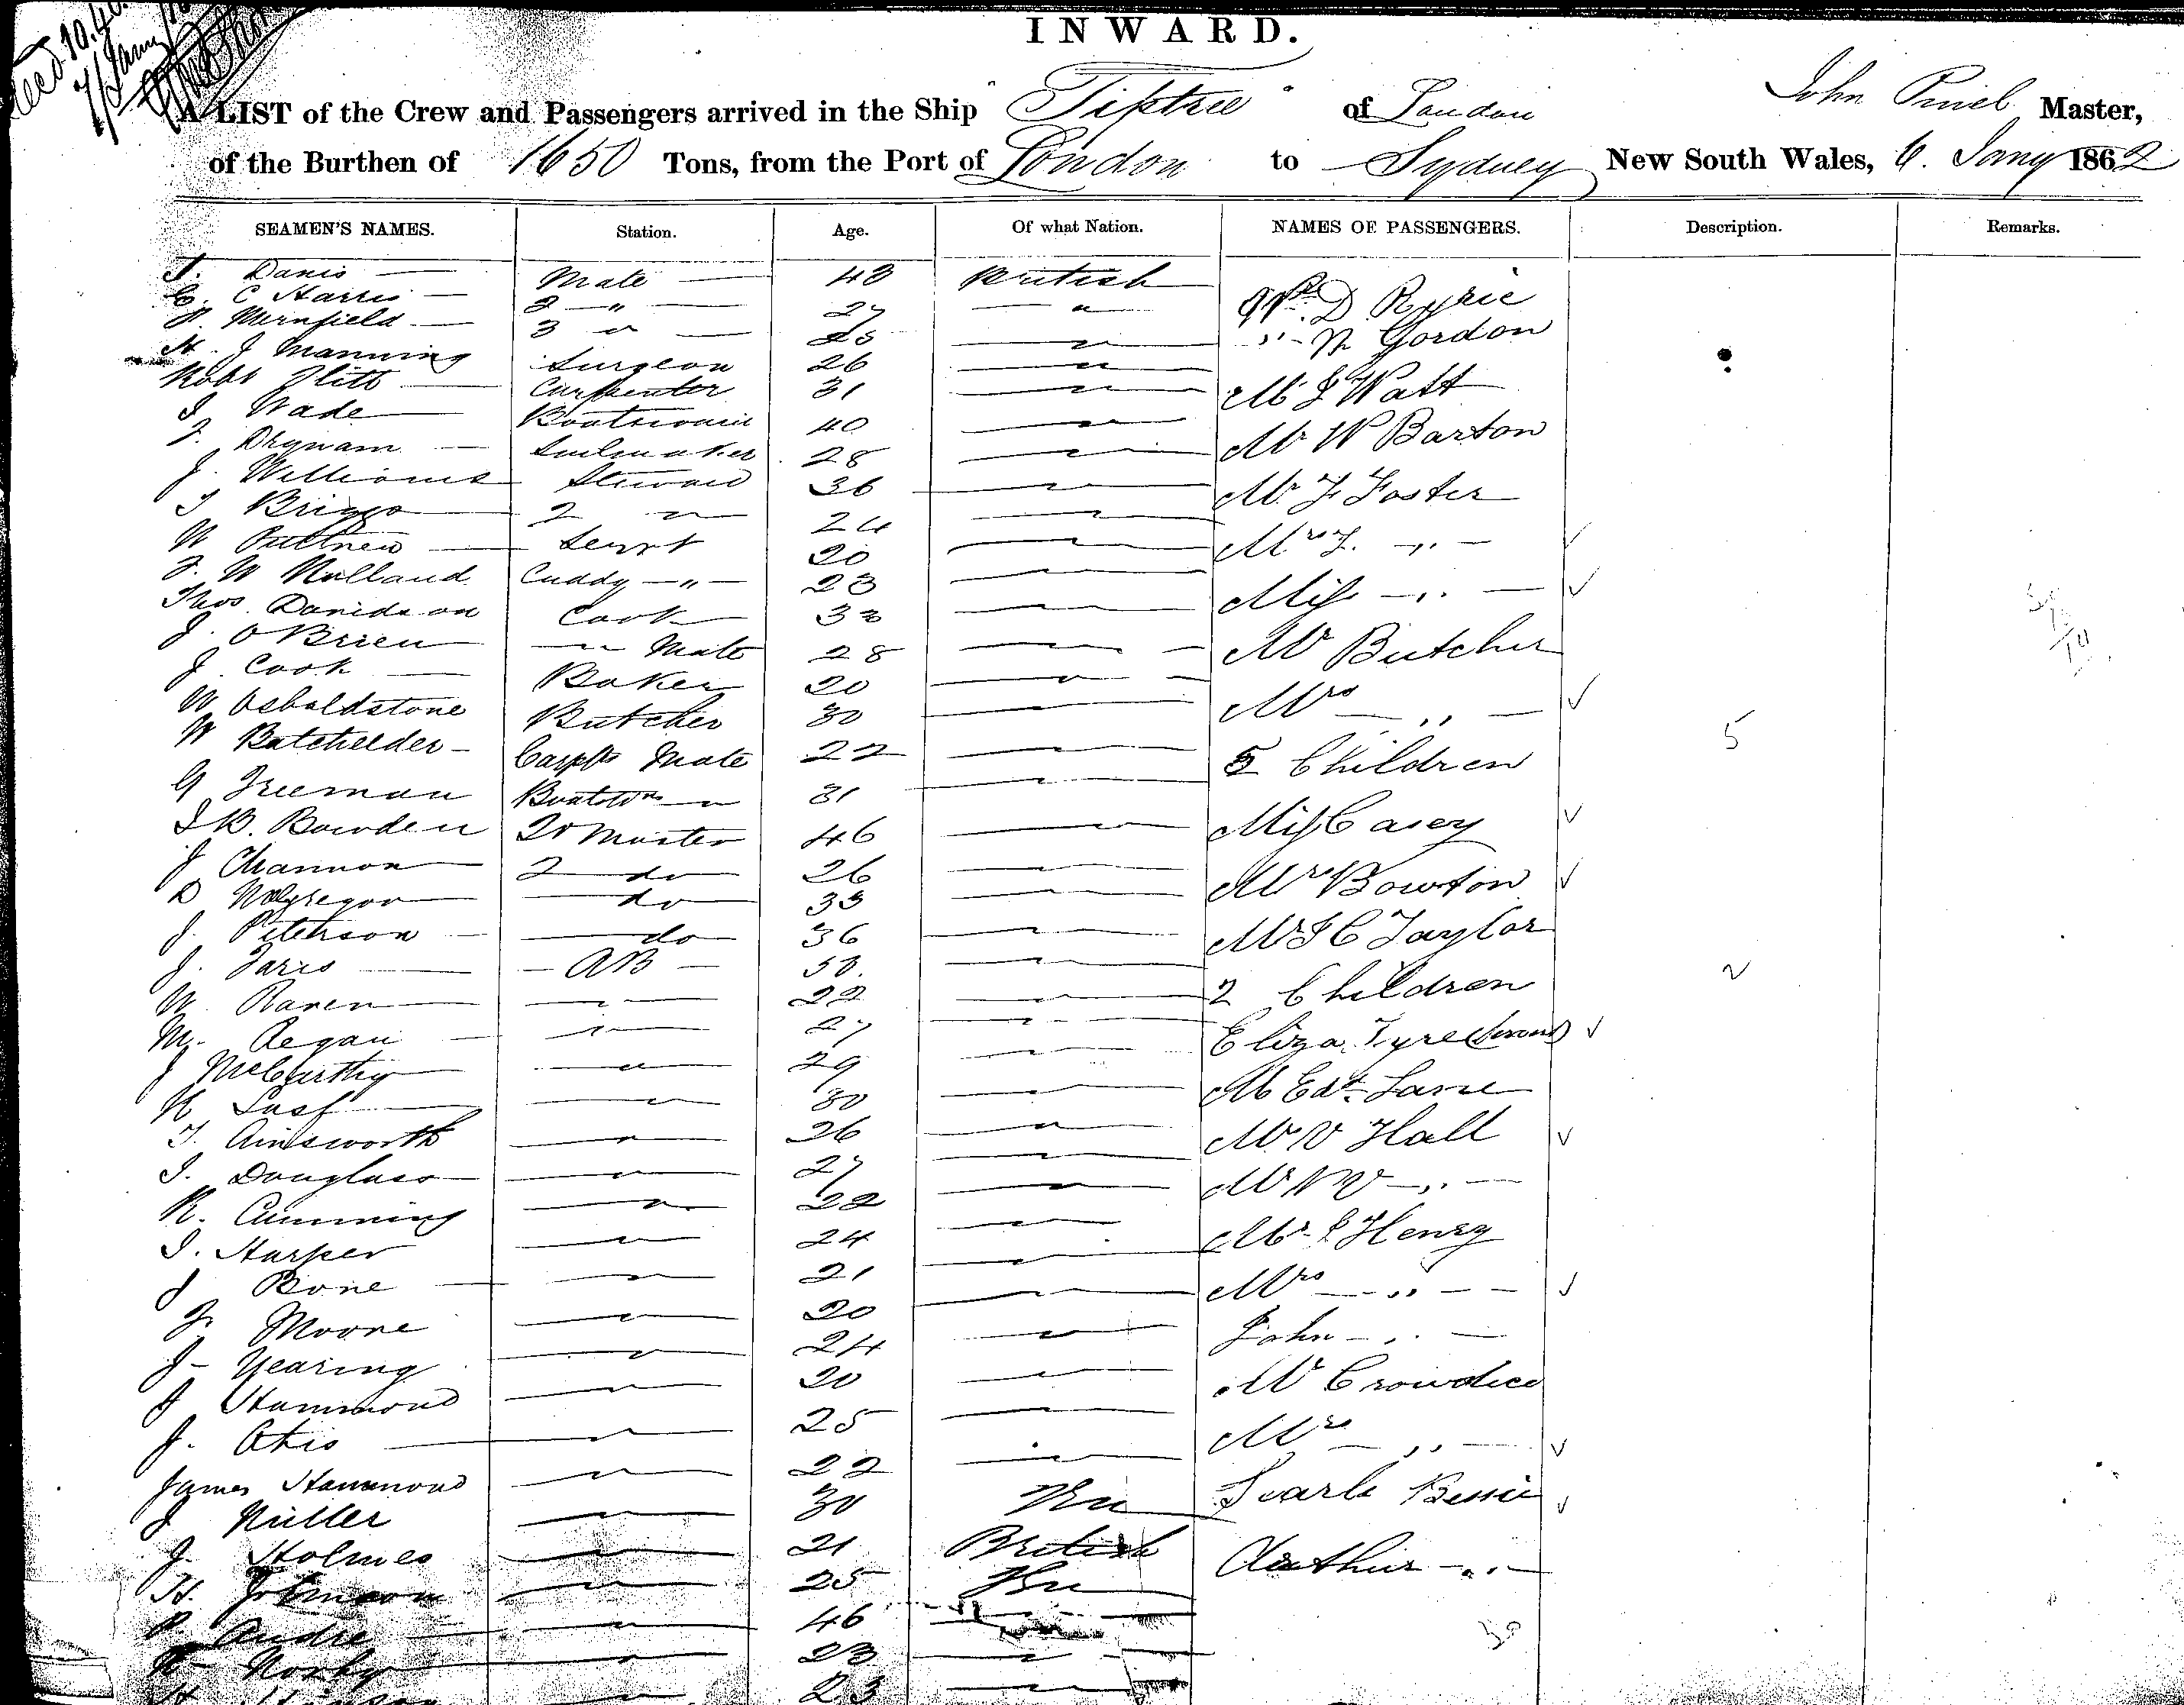 INWARD.
A LIST of the Crew and Passengers arrived in the Ship "Tiptree" of London John Pinel Master,
of the Burthen of 1650 Tons, from the Port of London to Sydney New South Wales, 6. Jany 1862
SEAMEN'S NAMES. Station. Age. Of what Nation. NAMES OF PASSENGERS. Description. Remarks.
Mate 43 British D Ryrie
C Harris 2 " 27 " Gordon
3 " 25 "
H. J Manning Surgeon 26 " Mr J Watt
Robt Carpenter 31 "
J Wade Boatswain 40 " Mr W Barton
Sailmaker 28 "
J. Williams Steward 36 " Mr F Foster
T Briggs 2 " 24 "
W Servt 20 Mrs F. " ✓
Cuddy " 23 Miss " ✓
Thos. Davidson Cook 33
J. O Brien " Mate 28 " Mr Butcher
J Cook Baker 20 "
W Osbaldstone Butcher 30 " Mrs " ✓
W Batchelder Carps Mate 22 " 5 Children 5
G Freeman Boatsns " 31 "
J B. Bowden Qr Master 46 " Miss Casey ✓
J Channon 2 do 26 "
D McGregor do 33 " Mr Bowton ✓
J. Peterson do 36 " Mr J C Taylor
J. AB
W. Raven " 22 " 2 Children 2
M. Regan " 27 " Eliza Tyre (servant) ✓
J McCarthy " 29 "
" 30 " Mr Edt Lane
T. Ainsworth " 26 " Mr V Hall ✓
J. Douglass " 27 "
R. Cumming " 22 " Mr W V "
J. Harper " 24 " Mr J Henry
J Bone " 21 "
F Moore " 20 " Mrs " ✓
J Yearing " 24 " John "
J Hammond " 20 " Mr Crowdice
J. Otis " 25 "
James Hammond " 22 " Mrs " ✓
J Miller " 30 Searle Bessie ✓
J. Holmes " 21 British Arthur "
H. Johnson " 25
Andre " 46
" 23 "
23